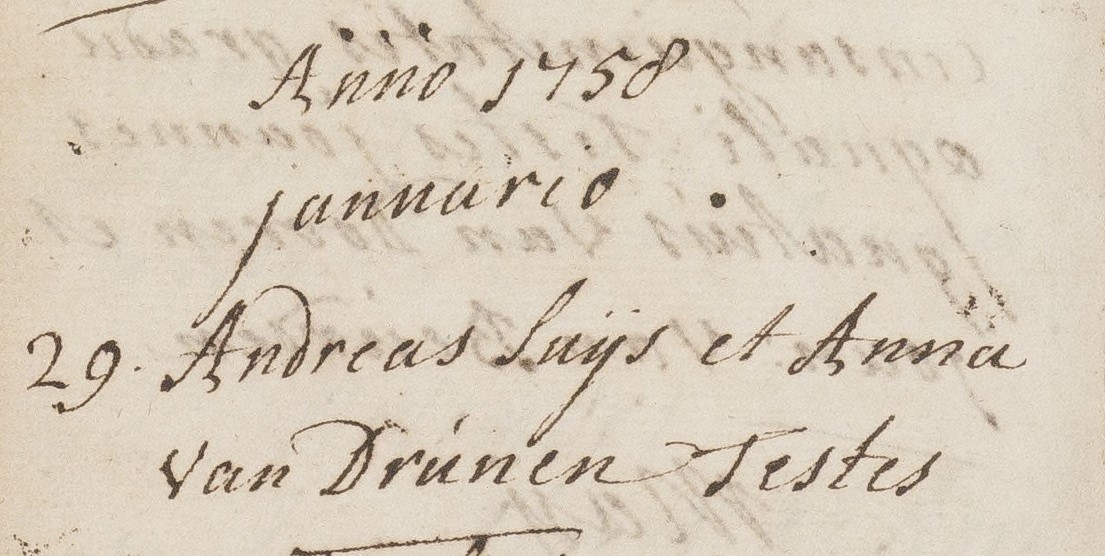 Anno 1758
januario .
29. Andreas Suijs et Anna
van Drúnen Testes